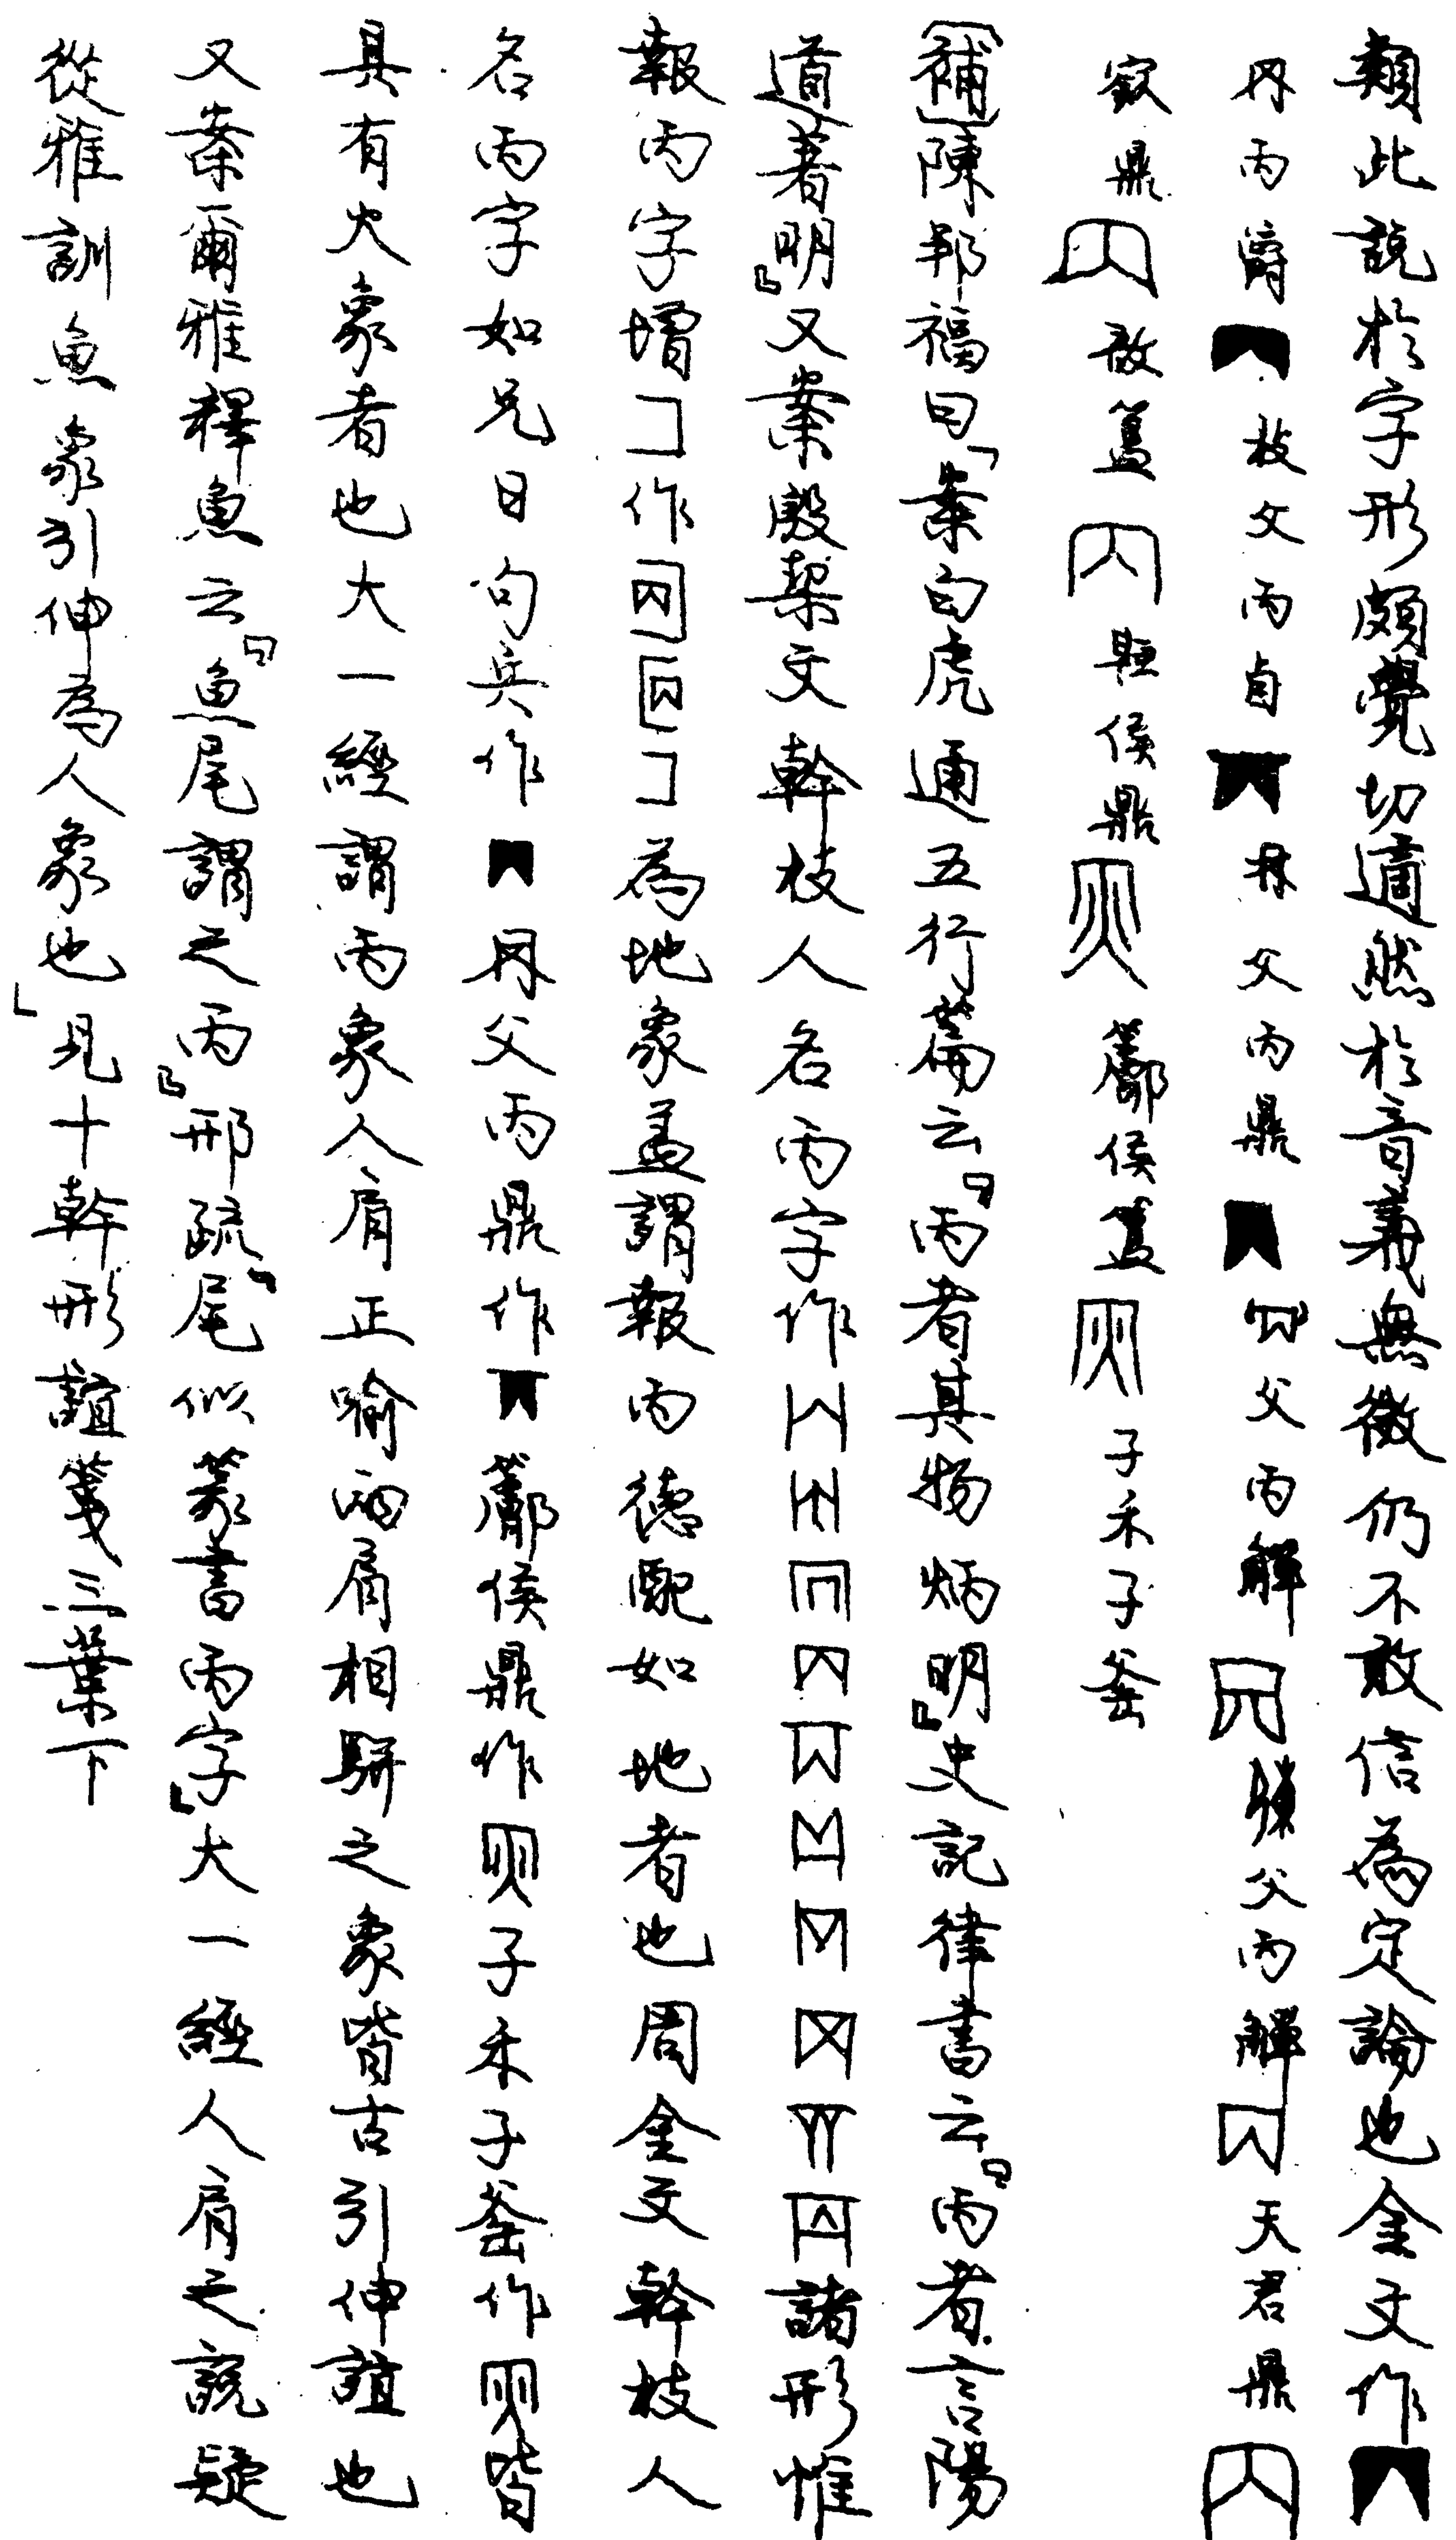 類此說於字形頗覺切適然於音義無徵仍不敢信為定論也金文作
丙爵 枚父丙卣 父丙鼎 父丙觶 父丙觶 天君鼎
鼎 敔簋 侯鼎 鄦侯簋 子禾子釜
〔補〕陳邦福曰「案白虎通五行篇云『丙者其物炳明』史記律書云『丙者言陽
道著明』又案殷栔文幹枝人名丙字作 諸形惟
報丙字增 作 為地象蓋謂報丙德配如地者也周金文幹枝人
名丙字如兄日句兵作 父丙鼎作 鄦侯鼎作 子禾子釜作 皆
具有火象者也大一經謂丙象人肩正喻兩肩相駢之象皆古引伸誼也
又案爾雅釋魚云『魚尾謂之丙』邢疏『尾似篆書丙字』大一經人肩之說疑
從雅訓魚象引伸為人象也」見十幹形誼箋三葉下